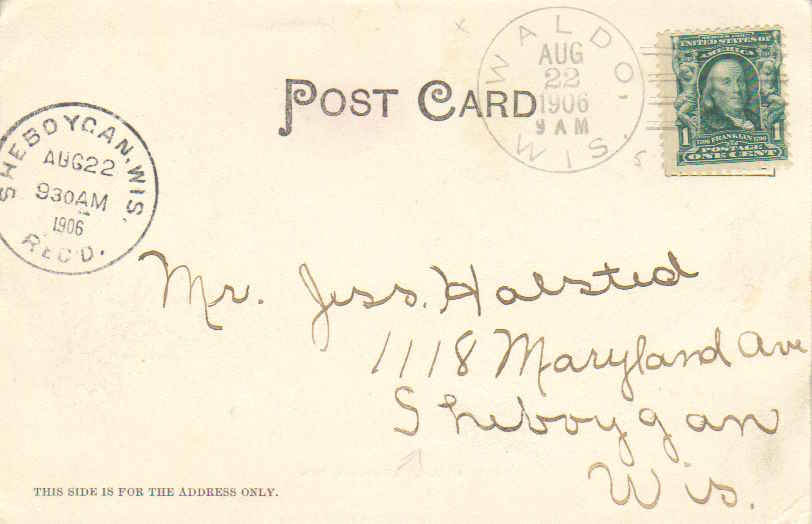 WALDO, WIS.
AUG
22
1906
9 AM
UNITED STATES OF
AMERICA
1 FRANKLIN 1
POSTAGE
ONE CENT
POST CARD
SHEBOYGAN, WIS.
AUG 22
930AM
1906
REC'D.
Mr. Jess. Halsted
1118 Maryland Ave
Sheboygan
Wis.
THIS SIDE IS FOR THE ADDRESS ONLY.